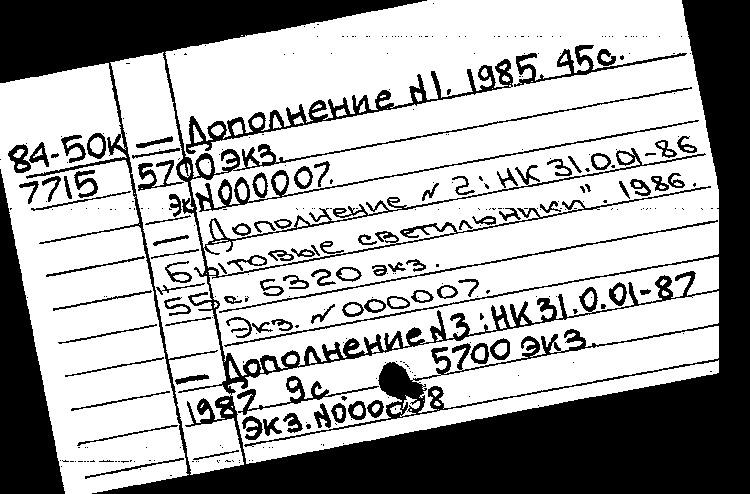 84-50к
7715
— Дополнение №1. 1985. 45с.
5700 экз.
экN000007.
— Дополнение № 2: НК 31.0.01-86
"Бытовые светильники". 1986.
55с. 5320 экз.
Экз. № 000007.
— Дополнение №3: НК 31.0.01-87
1987. 9с. 5700 экз.
Экз. №000008